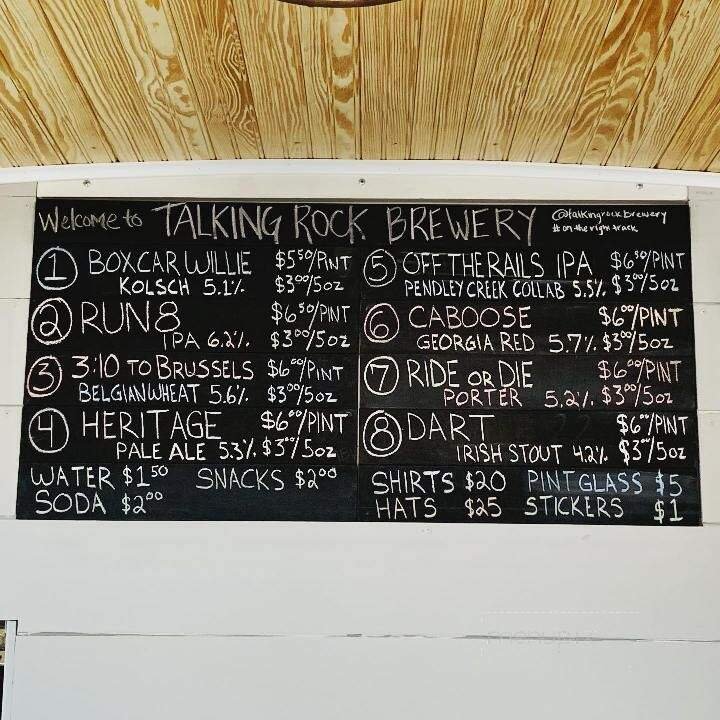 Welcome to TALKING ROCK BREWERY @talkingrockbrewery
#ontherightrack
1 BOXCAR WILLIE $5.50/PINT
KOLSCH 5.1% $3.00/5oz
2 RUN 8 $6.50/PINT
IPA 6.2% $3.00/5oz
3 3:10 TO BRUSSELS $6.00/PINT
BELGIAN WHEAT 5.6% $3.00/5oz
4 HERITAGE $6.00/PINT
PALE ALE 5.3% $3.00/5oz
WATER $1.50 SNACKS $2.00
SODA $2.00
5 OFF THE RAILS IPA $6.50/PINT
PENDLEY CREEK COLLAB 5.5% $3.00/5oz
6 CABOOSE $6.00/PINT
GEORGIA RED 5.7% $3.00/5oz
7 RIDE OR DIE $6.00/PINT
PORTER 5.2% $3.00/5oz
8 DART $6.00/PINT
IRISH STOUT 4.2% $3.00/5oz
SHIRTS $20 PINT GLASS $5
HATS $25 STICKERS $1